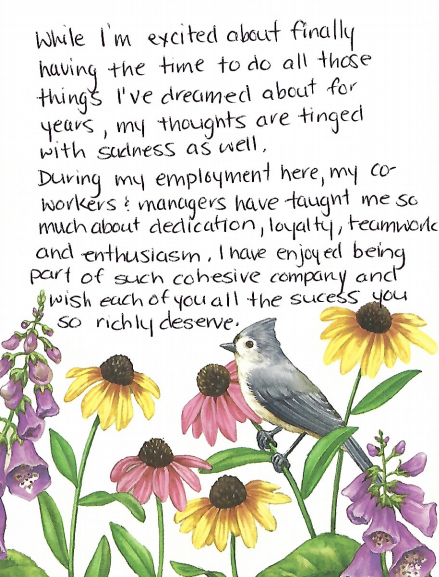 While I'm excited about finally
having the time to do all those
things I've dreamed about for
years, my thoughts are tinged
with sadness as well.
During my employment here, my co-
workers & managers have taught me so
much about dedication, loyalty, teamwork
and enthusiasm. I have enjoyed being
part of such cohesive company and
wish each of you all the sucess you
so richly deserve.